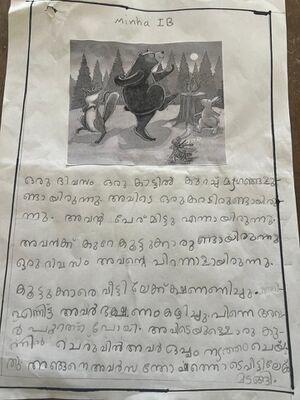 Minha IB
ഒരു ദിവസം ഒരു കാട്ടിൽ കുറച്ച് മൃഗങ്ങളു
ണ്ടായിരുന്നു. അവിടെ ഒരു കരടിയുണ്ടായിരു
ന്നു. അവന്റെ പേര് മിട്ടു എന്നായിരുന്നു.
അവൻക്ക് കുറേ കൂട്ടുക്കാരുണ്ടായിരുന്നു
ഒരു ദിവസം അവന്റെ പിറന്നാളായിരുന്നു.
കൂട്ടുക്കാരെ വീട്ടിലേക്ക് ക്ഷണണിച്ചു.
എന്നിട്ട് അവർ ഭക്ഷണം കഴിച്ചു. പിന്നെ അവർ
പുറത്ത് പോയി. അവിടെയുള്ള ഒരു കു
ചെറുവിൻ അവർ ഒപ്പം നൃത്തം ചെയ്
തു അങ്ങനെ അവർ സന്തോഷത്തോടെ വീട്ടിലേക്ക്
മടങ്ങി.